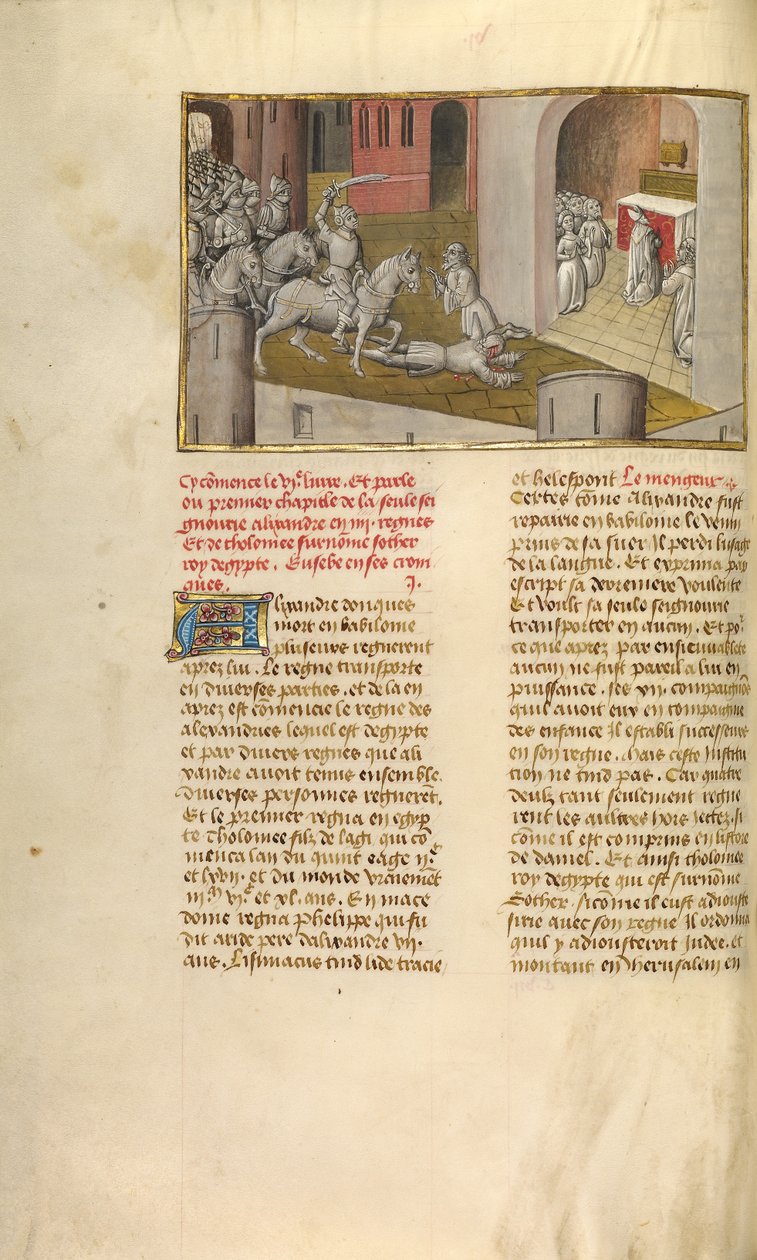 Cy cōmence le vjᵉ livre. Et parle
ou premier chapitle de la seule sei
gnourie alixandre en iiij. regnes
Et de tholomee surnōme sother
roy degypte. Eusebe en ses croni
ques. j.
Alixandre donques
mort en babilonie
pluseurs regnerent
aprez lui. Le regne transporte
en diverses parties. et de la en
aprez est cōmencie le regne des
alexandries lequel est degypte
et par divers regnes que ali
xandre avoit tenus ensemble.
Diverses personnes regnerēt.
Et le premier regna en egyp
te Tholomee filz de lagi qui cō
menca lan du quint eage ijᶜ
et lxvij. et du monde vraiemēt
iijᵐ vjᶜ et xl. ans. En mace
done regna Phelippe qui fu
dit aride pere dalixandre vij.
ans. Lisimacus tind lide tracie
et helespont Le mengeur
Certes cōme alixandre fust
repairie en babilonie le venin
prins de sa suer Il perdi lusage
de la langue. Et exprima par
escript sa derreniere voulente
Et voult sa seule seignourie
transporter en aucun. Et poᶜ
ce que aprez par ensievablete
aucun ne fust pareil a lui en
puissance. ses xij. compaignōs
quil avoit euz en compaignie
des enfance Il establi successeurs
en son regne. Mais ceste Institu
cion ne tind pas. Car quatre
deulz tant seulement regne
rent les aultres hors Iectez. si
cōme il est comprins en listore
de daniel. Et ainsi tholomee
roy degypte qui est surnōme
Sother. sicōme il eust adiouste
sirie avec son regne Il ordonna
quil y adiousteroit Iudee. et
montant en Iherusalem en